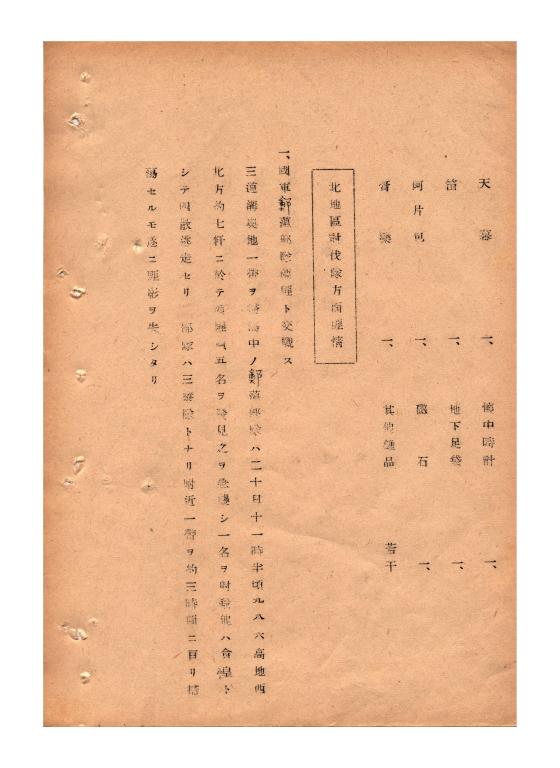 天幕 一、 懐中時計 一、
笛 一、 地下足袋 一、
阿片 一、 磁石 一、
膏薬 一、 其他雑品 若干
北地區討伐隊方面匪情
一、國軍鄭 部隊 匪ト交戰ス
三道溝奥地一帯ヲ 中ノ鄭 部隊ハ二十日十一時半頃九八六高地西
北方約七粁ニ於テ 匪 五名ヲ發見之ヲ急襲シ一名ヲ射殺他ハ倉皇ト
シテ四散逃走セリ 部隊ハ三 トナリ附近一帶ヲ約三時間ニ亘リ精
セルモ遂ニ匪影ヲ失シタリ